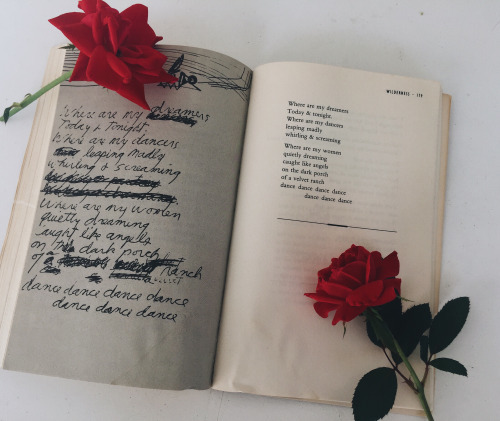 Where are my dreamers
Today & tonight.
Where are my dancers
leaping madly
whirling & screaming
Where are my women
quietly dreaming
caught like angels
on the dark porch
of a ranch
dance dance dance dance
dance dance dance
WILDERNESS · 119
Where are my dreamers
Today & tonight.
Where are my dancers
leaping madly
whirling & screaming
Where are my women
quietly dreaming
caught like angels
on the dark porch
of a velvet ranch
dance dance dance dance
dance dance dance